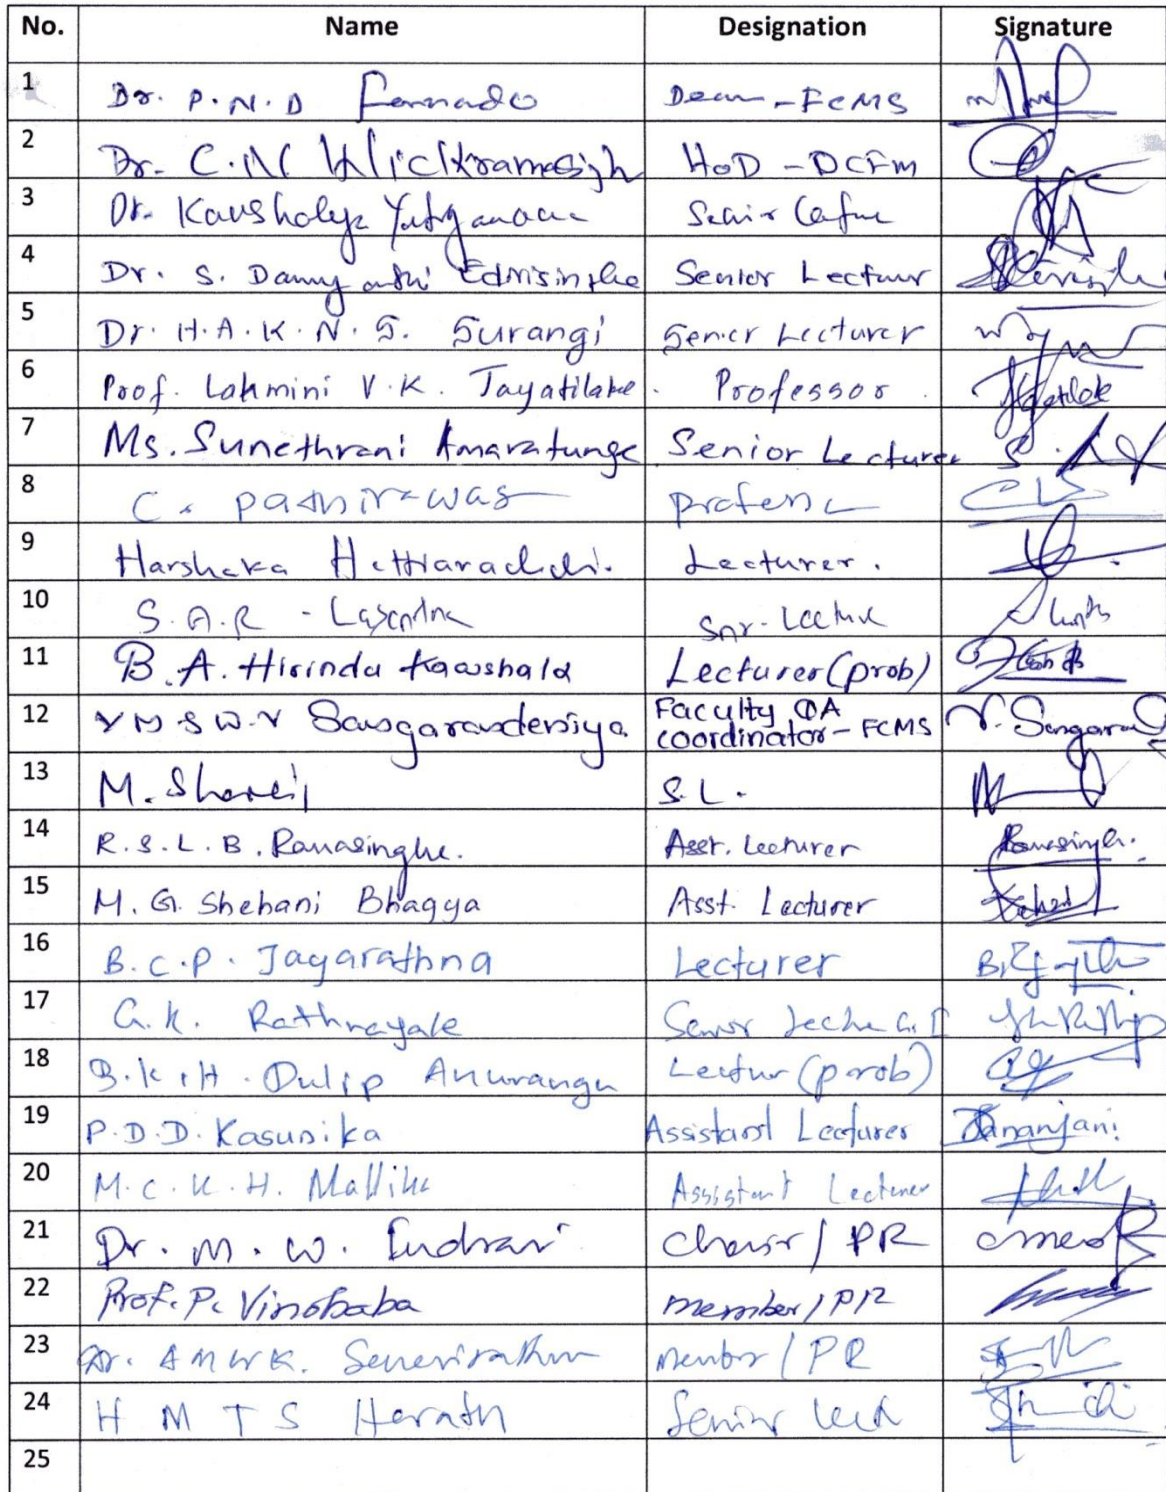 No. Name Designation Signature
1 Dr. P. N. D Fernado Dean - FCMS
2 Dr. C. N Wickramasigh HoD - DCFM
3 Dr. Kaushalya
4 Dr. S. Damayanthi Edirisinghe Senior Lecturer
5 Dr. H. A. K. N. S. Surangi Senior Lecturer
6 Prof. Lakmini V. K. Jayatilake. Professor.
7 Ms. Sunethrani Amaratunge Senior Lecturer
8 C. Pathirawas
9 Harshaka Hettiarachchi. Lecturer.
10 S. A. R - Lasantha Snr. Lecture
11 B. A. Hirindu Kawshala Lecturer (prob)
12 Y M S W. V Sangarandeniya Faculty QA
coordinator - FCMS V. Sangarand
13 M. S.L.
14 R. S. L. B. Ranasinghe. Asst. Lecturer Ranasinghe.
15 M. G. Shehani Bhagya Asst. Lecturer
16 B. C. P. Jayarathna Lecturer
17 G. K. Rathnayake Senior
18 B. K. H. Dulip Anuranga Lectur (prob)
19 P. D. D. Kasunika Assistant Lecturer Dananjani.
20 M. C. K. H. Mallika Assistant Lecturer
21 Dr. M. W. Indrani Chair / PR
22 Prof. P. Vinobaba member / PR
23 Dr. AMWK. Senevirathna member / PR
24 H M T S Herath Senior Lect
25